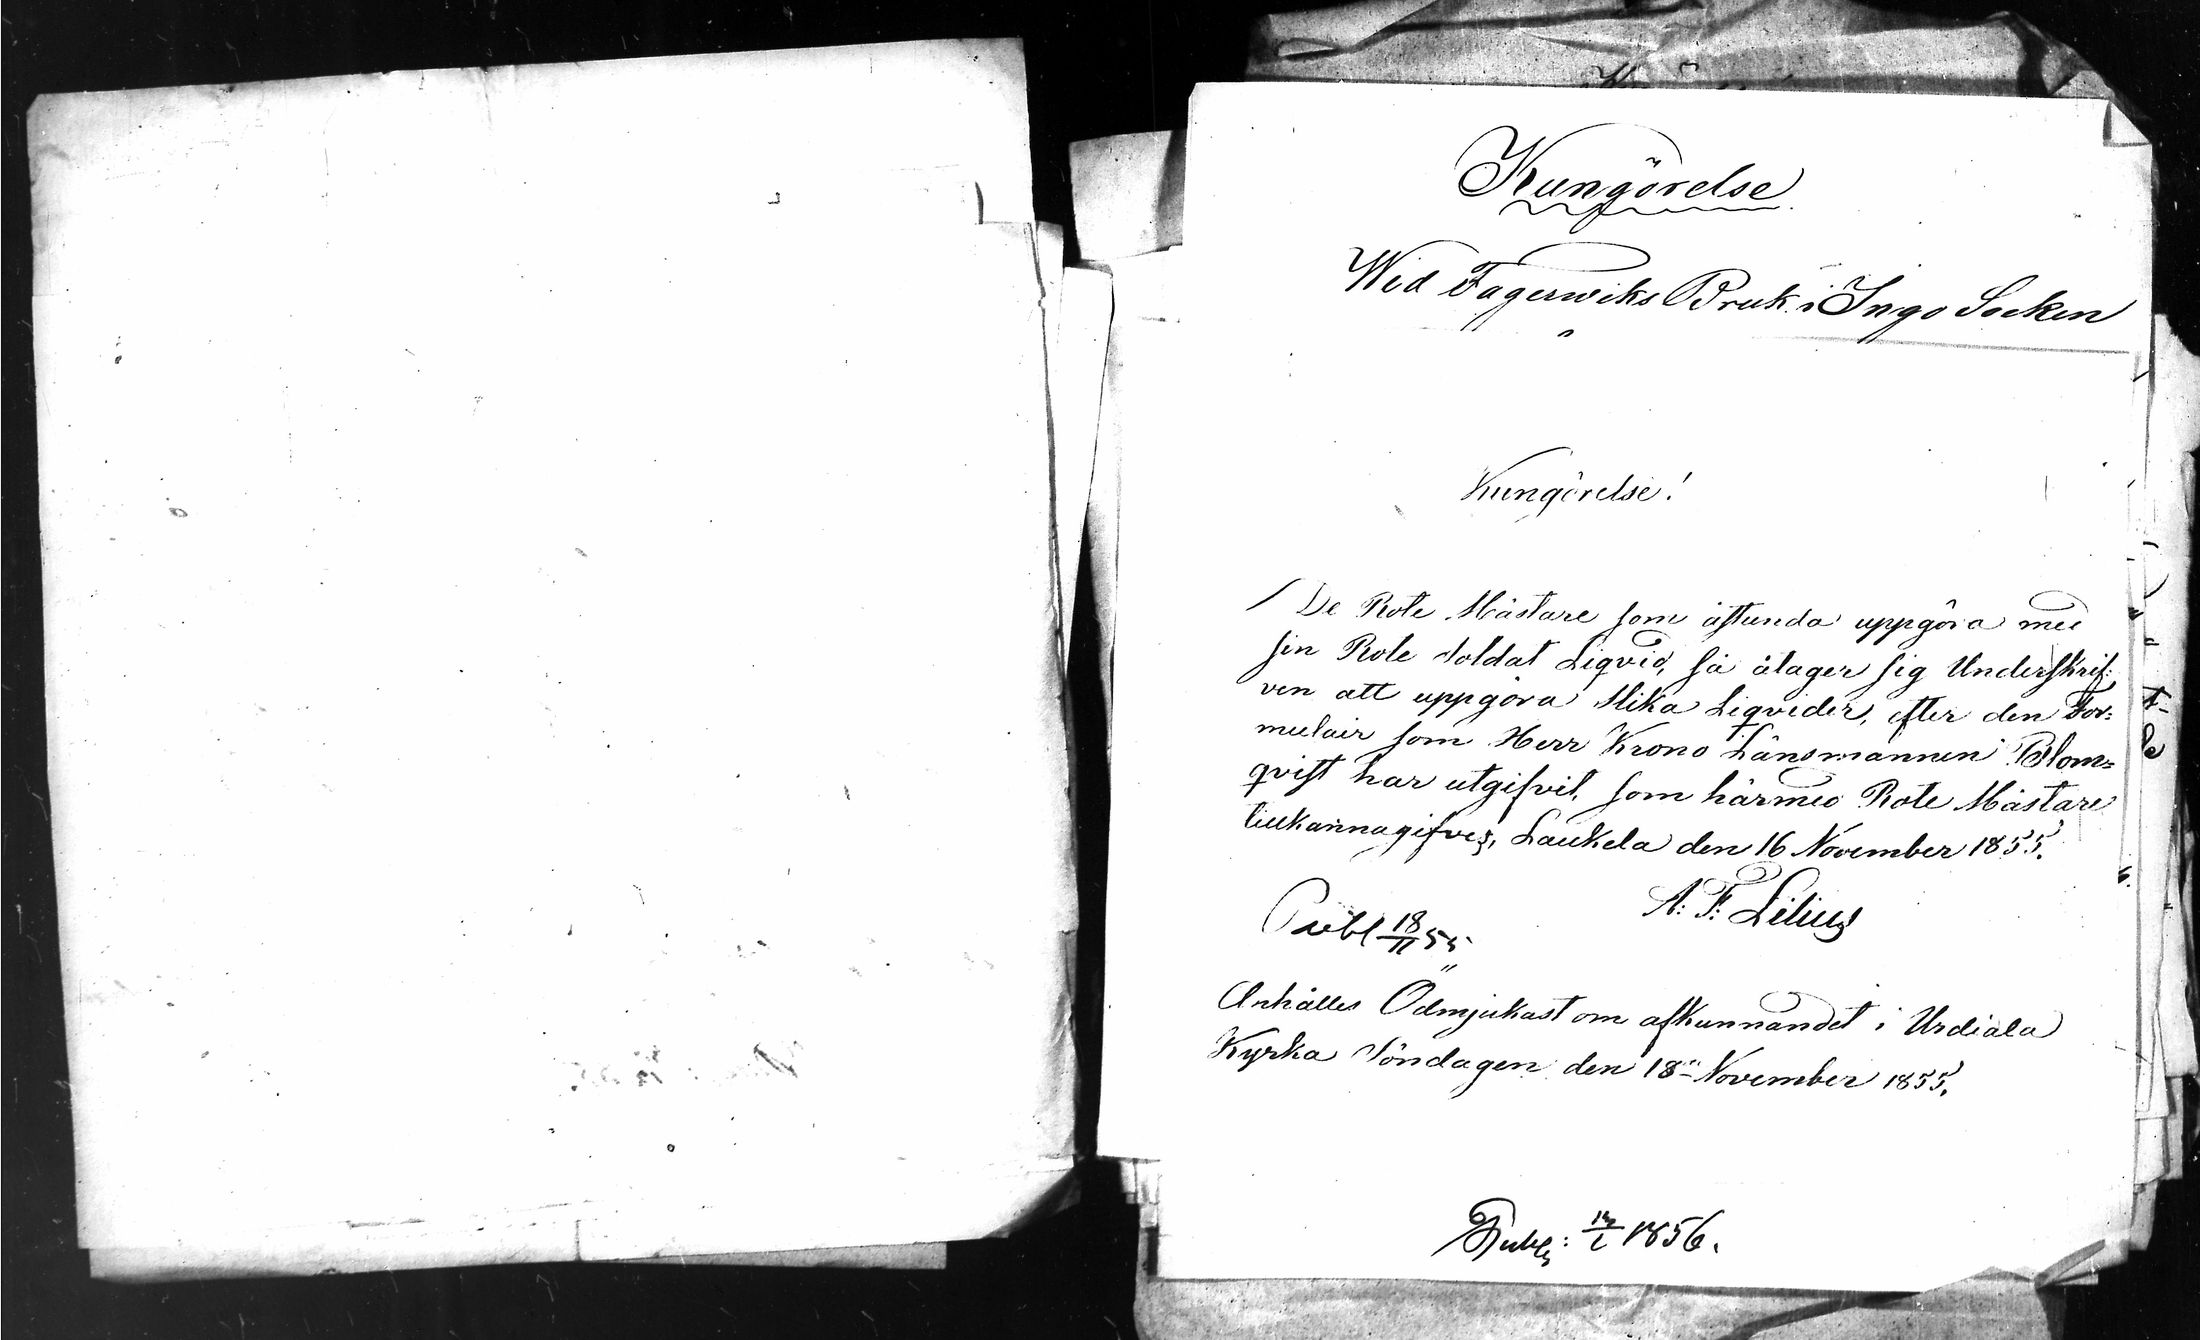 Kungörelse
Wid Fagerwiks Bruk i Ingo Socken
Kungörelse!
De Rote Mästare som åstunda uppgöra med
sin Rote Soldat Liqvid, så åtager sig Underskrif:
ven att uppgöra slika Liqvider, efter den For=
mulair som Herr Krono Länsmannen Blom=
qvist har utgifvit, som härmed Rote Mästare
tillkännagifves, Laukela den 16 November 1855.
A: F: Lilius
Publ 18/11 55
Anhålles Ödmjukast om afkunnandet i Urdiala
Kyrka Söndagen den 18 November 1855.
1856.